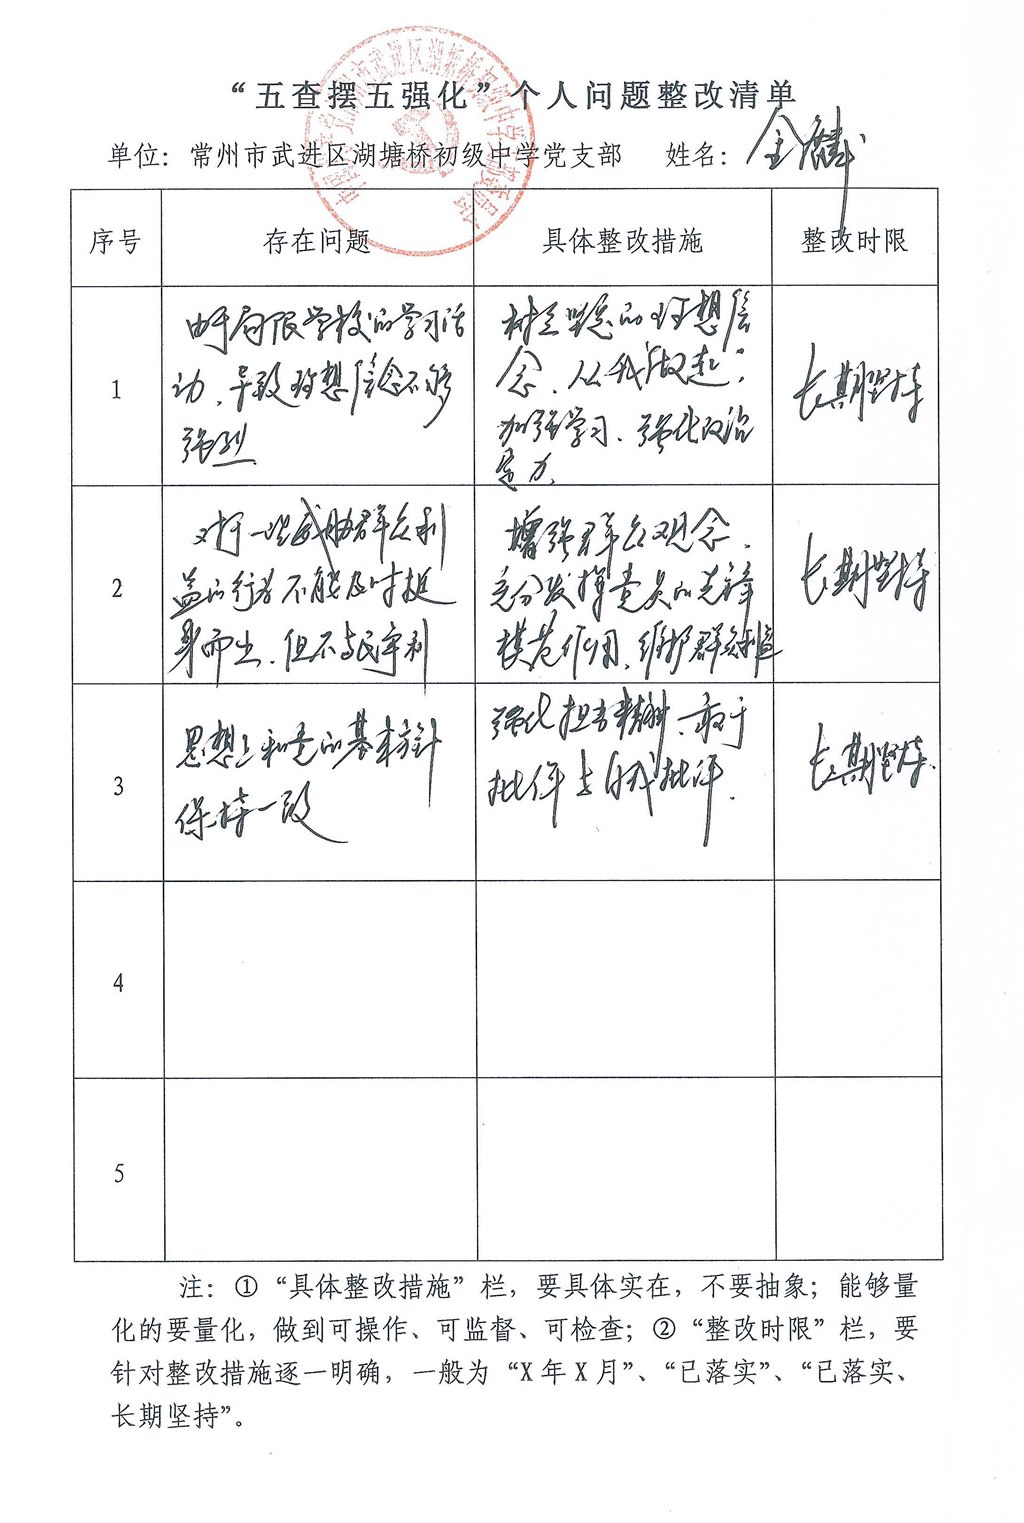 “五查摆五强化”个人问题整改清单
单位：常州市武进区湖塘桥初级中学党支部 姓名：金麟
序号 存在问题 具体整改措施 整改时限
1
由于局限学校的学习活
动、导致理想信念不够
强烈.
树立坚定的理想信
念、从我“做起”,
加强学习、强化政治
能力、
长期坚持
2
对于一些威胁群众利
益的行为不能及时挺
身而出、但不与民争利
增强群众观念、
充分发挥党员的先锋
模范作用、维护群众利益
长期坚持
3
思想上和党的基本方针
保持一致
强化担当精神、敢于
批评与自我批评.
长期坚持.
4
5
注：①“具体整改措施”栏，要具体实在，不要抽象；能够量
化的要量化，做到可操作、可监督、可检查；②“整改时限”栏，要
针对整改措施逐一明确，一般为“X年X月”、“已落实”、“已落实、
长期坚持”。